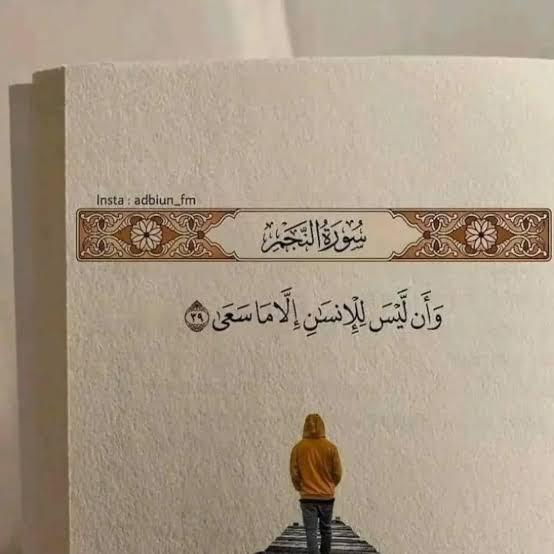 Insta : adbiun_fm
سُورَةُ النَّجْمِ
وَأَن لَّيْسَ لِلْإِنسَـٰنِ إِلَّا مَا سَعَىٰ ٣٩